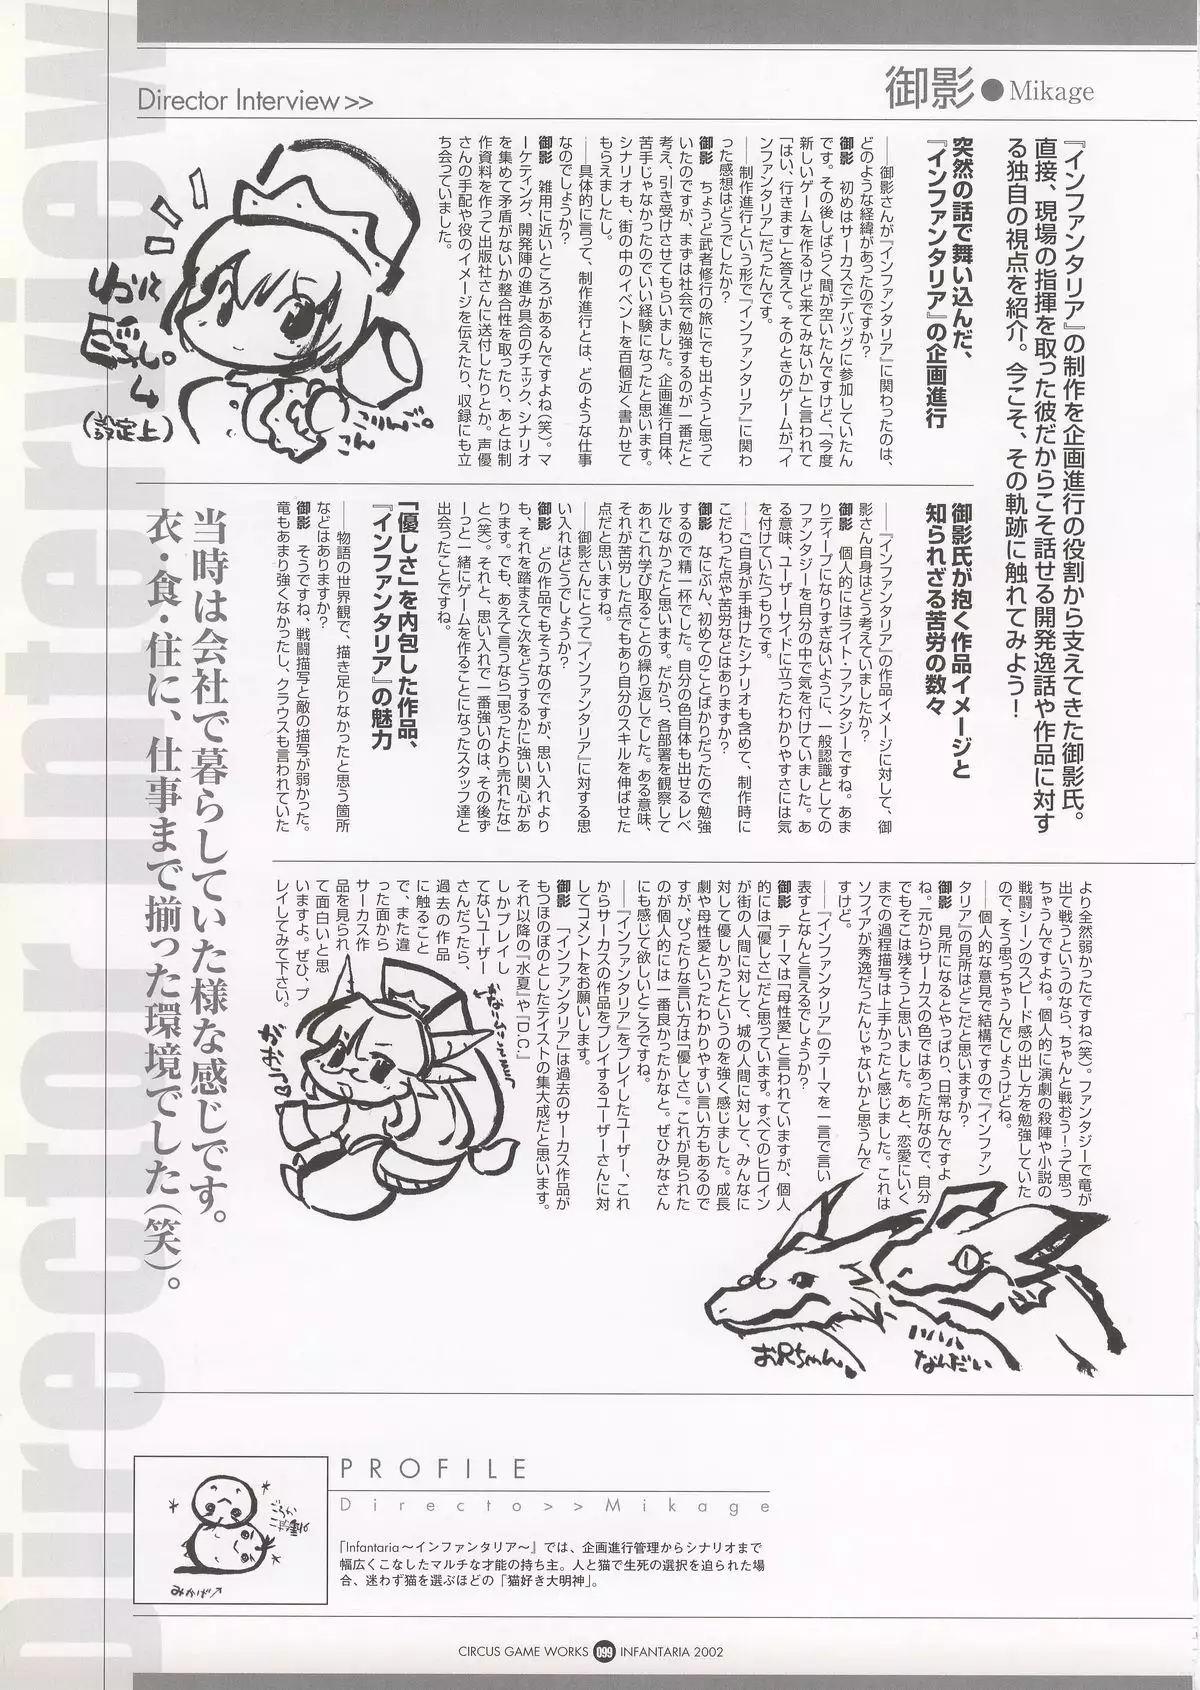 Director Interview
Director Interview>>
御影●Mikage
『インファンタリア』の制作を企画進行の役割から支えてきた御影氏。
直接、現場の指揮を取った彼だからこそ話せる開発逸話や作品に対す
る独自の視点を紹介。今こそ、その軌跡に触れてみよう！
突然の話で舞い込んだ、
『インファンタリア』の企画進行
――御影さんが『インファンタリア』に関わったのは、
どのような経緯があったのですか？
御影　初めはサーカスでデバッグに参加していたん
です。その後しばらく間が空いたんですけど、「今度
新しいゲームを作るけど来てみないか」と言われて
「はい、行きます」と答えて。そのときのゲームが「イ
ンファンタリア」だったんです。
――制作進行という形で『インファンタリア』に関わ
った感想はどうでしたか？
御影　ちょうど武者修行の旅にでも出ようと思って
いたのですが、まずは社会で勉強するのが一番だと
考え、引き受けさせてもらいました。企画進行自体、
苦手じゃなかったのでいい経験になったと思います。
シナリオも、街の中のイベントを百個近く書かせて
もらえましたし。
――具体的に言って、制作進行とは、どのような仕事
なのでしょうか？
御影　雑用に近いところがあるんですよね（笑）。マ
ーケティング、開発陣の進み具合のチェック、シナリオ
を集めて矛盾がないか整合性を取ったり、あとは制
作資料を作って出版社さんに送付したりとか。声優
さんの手配や役のイメージを伝えたり、収録にも立
ち会っていました。
（設定上）
こりんご。
こん
御影氏が抱く作品イメージと
知られざる苦労の数々
――『インファンタリア』の作品イメージに対して、御
影さん自身はどう考えていましたか？
御影　個人的にはライト・ファンタジーですね。あま
りディープになりすぎないように、一般認識としての
ファンタジーを自分の中で気を付けていました。あ
る意味、ユーザーサイドに立ったわかりやすさには気
を付けていたつもりです。
――ご自身が手掛けたシナリオも含めて、制作時に
こだわった点や苦労などはありますか？
御影　なにぶん、初めてのことばかりだったので勉強
するので精一杯でした。自分の色自体も出せるレベ
ルでなかったと思います。だから、各部署を観察して
あれこれ学び取ることの繰り返しでした。ある意味、
それが苦労した点でもあり自分のスキルを伸ばせた
点だと思いますね。
――御影さんにとって『インファンタリア』に対する思
い入れはどうでしょうか？
御影　どの作品でもそうなのですが、思い入れより
も、それを踏まえて次をどうするかに強い関心があ
ります。でも、あえて言うなら「思ったより売れたな」
と（笑）。それと、思い入れで一番強いのは、その後ず
ーっと一緒にゲームを作ることになったスタッフ達と
出会ったことですね。
「優しさ」を内包した作品、
『インファンタリア』の魅力
――物語の世界観で、描き足りなかったと思う箇所
などはありますか？
御影　そうですね、戦闘描写と敵の描写が弱かった。
竜もあまり強くなかったし、クラウスも言われていた
当時は会社で暮らしていた様な感じです。
衣・食・住に、仕事まで揃った環境でした（笑）。
より全然弱かったですね（笑）。ファンタジーで竜が
出て戦うというのなら、ちゃんと戦おう！って思っ
ちゃうんですよね。個人的に演劇の殺陣や小説の
戦闘シーンのスピード感の出し方を勉強していた
ので、そう思っちゃうんでしょうけどね。
――個人的な意見で結構ですので『インファン
タリア』の見所はどこだと思いますか？
御影　見所になるとやっぱり、日常なんですよ
ね。元からサーカスの色ではあった所なので、自分
でもそこは残そうと思いました。あと、恋愛にいく
までの過程描写は上手かったと感じました。これは
ソフィアが秀逸だったんじゃないかと思うんで
すけど。
――『インファンタリア』のテーマを一言で言い
表すとなんと言えるでしょうか？
御影　テーマは「母性愛」と言われていますが、個人
的には「優しさ」だと思っています。すべてのヒロイン
が街の人間に対して、城の人間に対して、みんなに
対して優しかったというのを強く感じました。成長
劇や母性愛といったわかりやすい言い方もあるので
すが、ぴったりな言い方は「優しさ」。これが見られた
のが個人的には一番良かったかなと。ぜひみなさん
にも感じて欲しいところですね。
――『インファンタリア』をプレイしたユーザー、これ
からサーカスの作品をプレイするユーザーさんに対
してコメントをお願いします。
御影　『インファンタリア』は過去のサーカス作品が
もつほのぼのとしたテイストの集大成だと思います。
それ以降の『水夏』や『D.C.』
しかプレイし
てないユーザー
さんだったら、
過去の作品
に触ること
で、また違
った面から
サーカス作
品を見られ
て面白いと思
いますよ。ぜひ、プ
レイしてみて下さい。
がおっ♡
お兄ちゃん。
ハハハハ
なんだい
PROFILE
Directo>>Mikage
『Infantaria～インファンタリア～』では、企画進行管理からシナリオまで
幅広くこなしたマルチな才能の持ち主。人と猫で生死の選択を迫られた場
合、迷わず猫を選ぶほどの「猫好き大明神」。
みかげ↗
CIRCUS GAME WORKS 099 INFANTARIA 2002